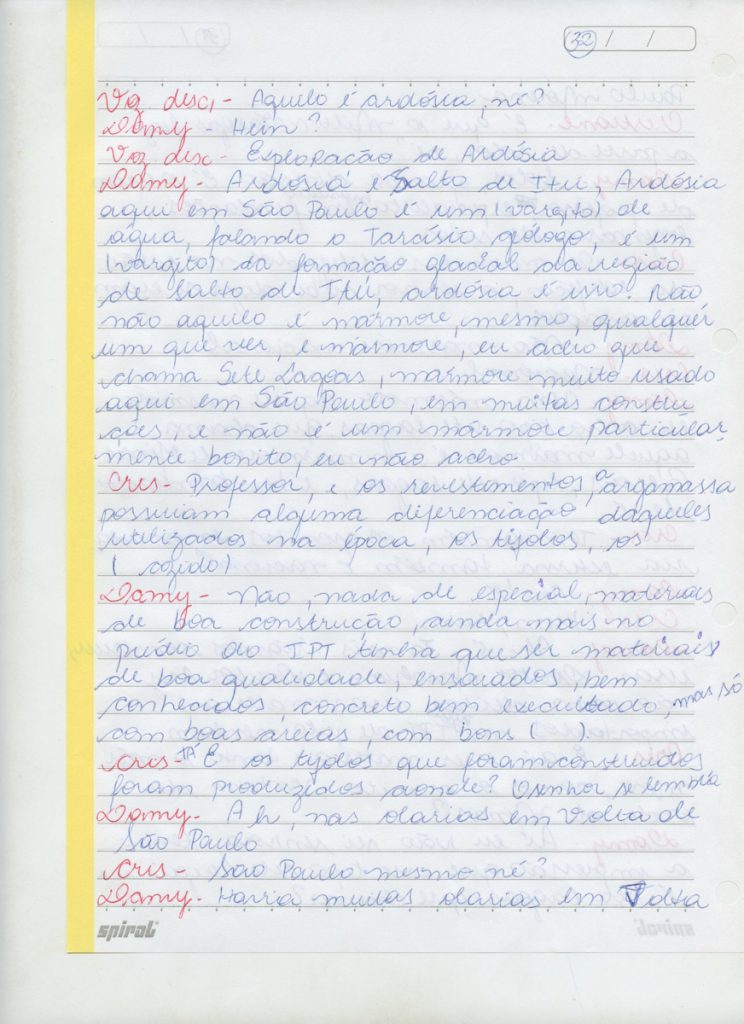 32 / /
Voz desc, - Aquilo é ardósia, né?
Damy - Hein?
Voz desc - Exploração de Ardósia
Damy - Ardósia é Salto de Itu, Ardósia
aqui em São Paulo é um (vargito) de
água, falando o Tarcísio geólogo, é um
(vargito) da formação glacial da região
de Salto de Itú, ardósia é isso. Não
não aquilo é mármore, mesmo, qualquer
um que ver, é mármore, eu acho que
chama Sete Lagoas, mármore muito usado
aqui em São Paulo, em muitas constru
ções, e não é um mármore particular
mente bonito, eu não acho
Cris - Professor, e os revestimentos, a argamassa
possuiam alguma diferenciação daqueles
utilizados na época, os tijolos, os
( cozido)
Damy - Não, nada de especial, materiais
de boa construção, ainda mais no
prédio do IPT tinha que ser materiais
de boa qualidade, ensaiados, bem
conhecidos, concreto bem executado, mas só
com boas areias, com bons ( ).
Cris - Tá E os tijolos que foram construidos
foram produzidos aonde? O senhor se lembra
Damy - Ah, nas olarias em Volta de
São Paulo
Cris - São Paulo mesmo né?
Damy - Havia muitas olarias em Volta
spiral